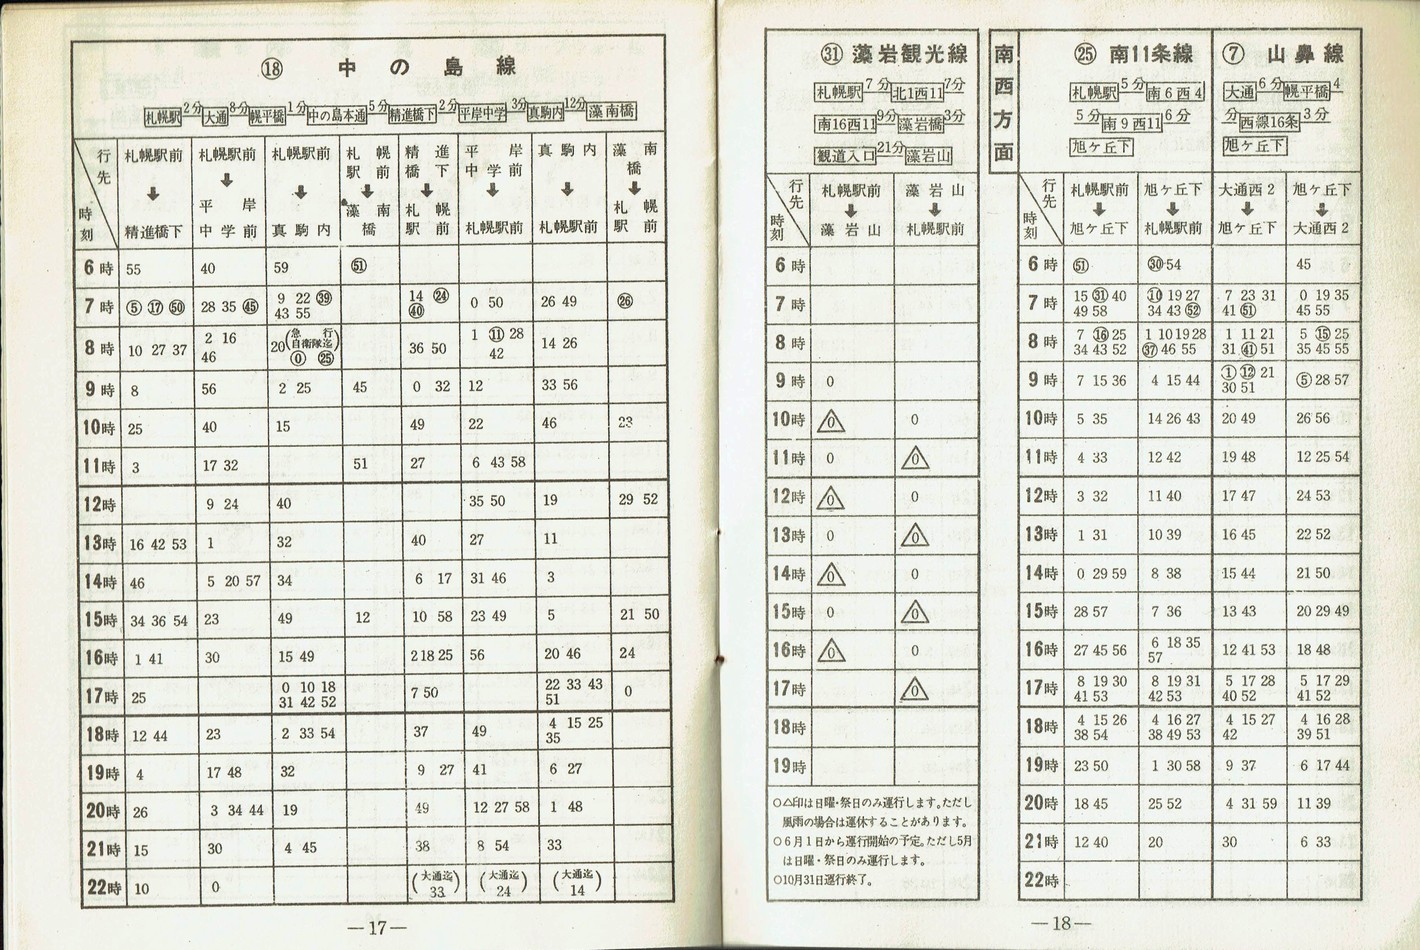 ⑱ 中の島線
札幌駅 2分 大通 8分 幌平橋 1分 中の島本通 5分 精進橋下 2分 平岸中学 3分 真駒内 12分 藻南橋
行先 時刻 札幌駅前→精進橋下 札幌駅前→平岸中学前 札幌駅前→真駒内 札幌駅前→藻南橋 精進橋下→札幌駅前 平岸中学前→札幌駅前 真駒内→札幌駅前 藻南橋→札幌駅前
6時 55 40 59 ㊿+1
7時 ⑤ ⑰ ㊿ 28 35 ㊺ 9 22 ㊴ 43 55 14 ㉔ ㊵ 0 50 26 49 ㉖
8時 10 27 37 2 16 46 20(急行 自衛隊迄 ⓪ ㉕) 36 50 1 ⑪ 28 42 14 26
9時 8 56 2 25 45 0 32 12 33 56
10時 25 40 15 49 22 46 23
11時 3 17 32 51 27 6 43 58
12時 9 24 40 35 50 19 29 52
13時 16 42 53 1 32 40 27 11
14時 46 5 20 57 34 6 17 31 46 3
15時 34 36 54 23 49 12 10 58 23 49 5 21 50
16時 1 41 30 15 49 2 18 25 56 20 46 24
17時 25 0 10 18 31 42 52 7 50 22 33 43 51 0
18時 12 44 23 2 33 54 37 49 4 15 25 35
19時 4 17 48 32 9 27 41 6 27
20時 26 3 34 44 19 49 12 27 58 1 48
21時 15 30 4 45 38 8 54 33
22時 10 0 (大通迄 33) (大通迄 24) (大通迄 14)
—17—
㉛ 藻岩観光線
札幌駅 7分 北1西11 7分
南16西11 9分 藻岩橋 3分
観道入口 21分 藻岩山
行先 時刻 札幌駅前→藻岩山 藻岩山→札幌駅前
6時
7時
8時
9時 0
10時 △0 0
11時 0 △0
12時 △0 0
13時 0 △0
14時 △0 0
15時 0 △0
16時 △0 0
17時 △0
18時
19時
○△印は日曜・祭日のみ運行します。ただし
風雨の場合は運休することがあります。
○6月1日から運行開始の予定。ただし5月
は日曜・祭日のみ運行します。
○10月31日運行終了。
南西方面
㉕ 南11条線
札幌駅 5分 南6西4
5分 南9西11 6分
旭ヶ丘下
⑦ 山鼻線
大通 6分 幌平橋 4
分 西線16条 3分
旭ヶ丘下
行先 時刻 札幌駅前→旭ヶ丘下 旭ヶ丘下→札幌駅前 大通西2→旭ヶ丘下 旭ヶ丘下→大通西2
6時 (51) ㉚ 54 45
7時 15 ㉛ 40 49 58 ⑩ 19 27 34 43 (52) 7 23 31 41 (51) 0 19 35 45 55
8時 7 ⑯ 25 34 43 52 1 10 19 28 ㊲ 46 55 1 11 21 31 ㊶ 51 5 ⑮ 25 35 45 55
9時 7 15 36 4 15 44 ① ⑫ 21 30 51 ⑤ 28 57
10時 5 35 14 26 43 20 49 26 56
11時 4 33 12 42 19 48 12 25 54
12時 3 32 11 40 17 47 24 53
13時 1 31 10 39 16 45 22 52
14時 0 29 59 8 38 15 44 21 50
15時 28 57 7 36 13 43 20 29 49
16時 27 45 56 6 18 35 57 12 41 53 18 48
17時 8 19 30 41 53 8 19 31 42 53 5 17 28 40 52 5 17 29 41 52
18時 4 15 26 38 54 4 16 27 38 49 53 4 15 27 42 4 16 28 39 51
19時 23 50 1 30 58 9 37 6 17 44
20時 18 45 25 52 4 31 59 11 39
21時 12 40 20 30 6 33
22時
—18—